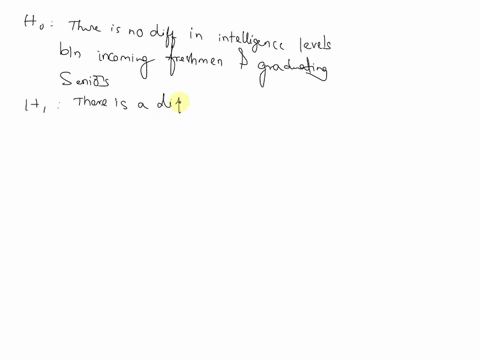 H₀: There is no diff in intelligence levels
b/n incoming freshmen & graduating
Seniors
H₁: There is a dif